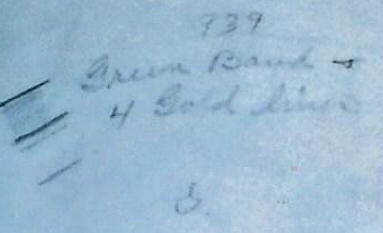 939
Green Band &
4 Gold lines